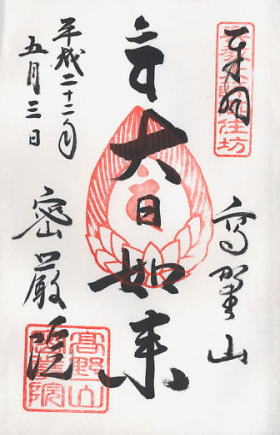 奉拝
大師住坊
高野山
大日如来
平成二十二年
五月三日
密厳院
高野山
密厳院